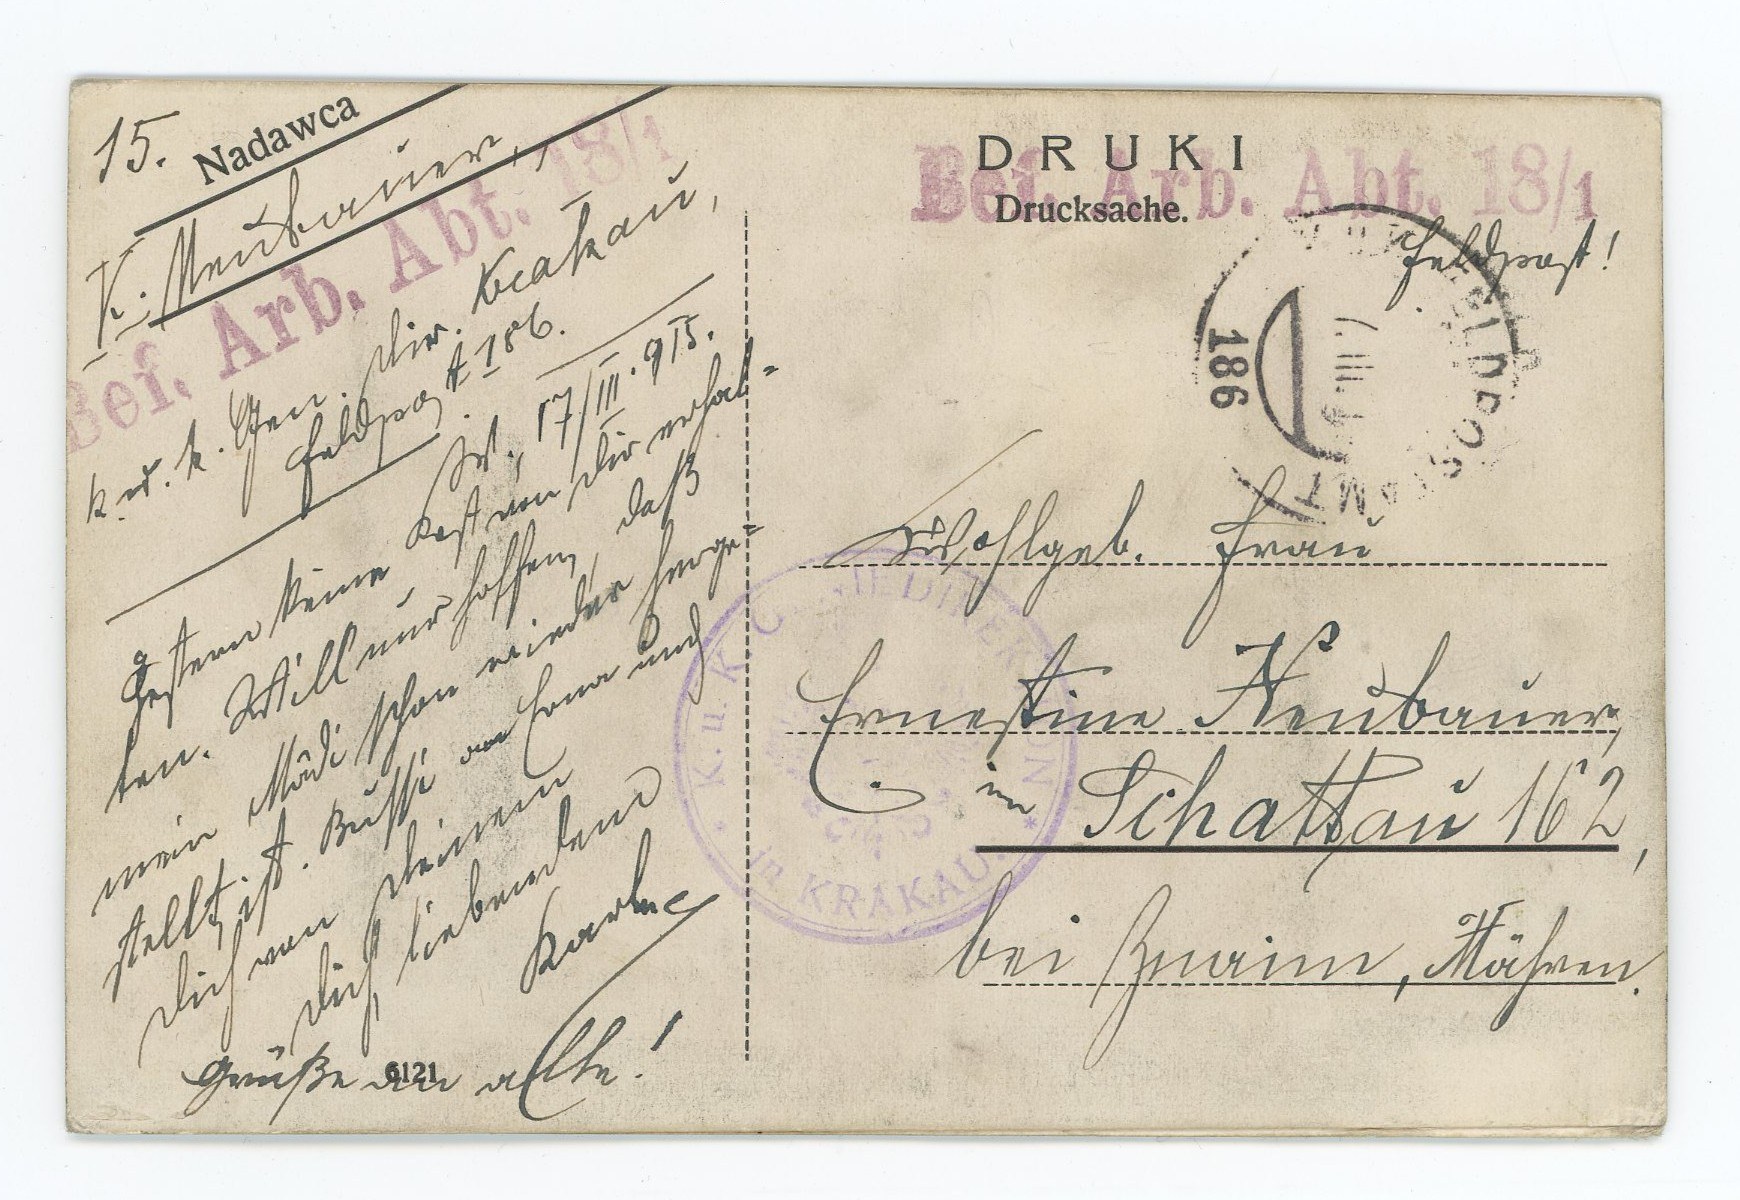 15.
Nadawca
K. Neubauer,
Bef. Arb. Abt. 18/1
k. u. k. Gen. Dir. Krakau,
Feldpost 186.
17/III. 915.
Gestern keine Post von Dir erhal-
ten. Will nur hoffen, daß
mein Mädi schon wieder herge-
stellt ist. Bussi an Erna und
Dich von Deinem
Dich liebenden
Karl
Grüße an alle!
6121
DRUKI
Drucksache.
Bef. Arb. Abt. 18/1
Feldpost!
FELDPOSTAMT
186
Wohlgeb. Frau
Ernestine Neubauer,
in Schattau 162,
bei Znaim, Mähren.
K. u. K. GENIEDIREKTION
in KRAKAU.